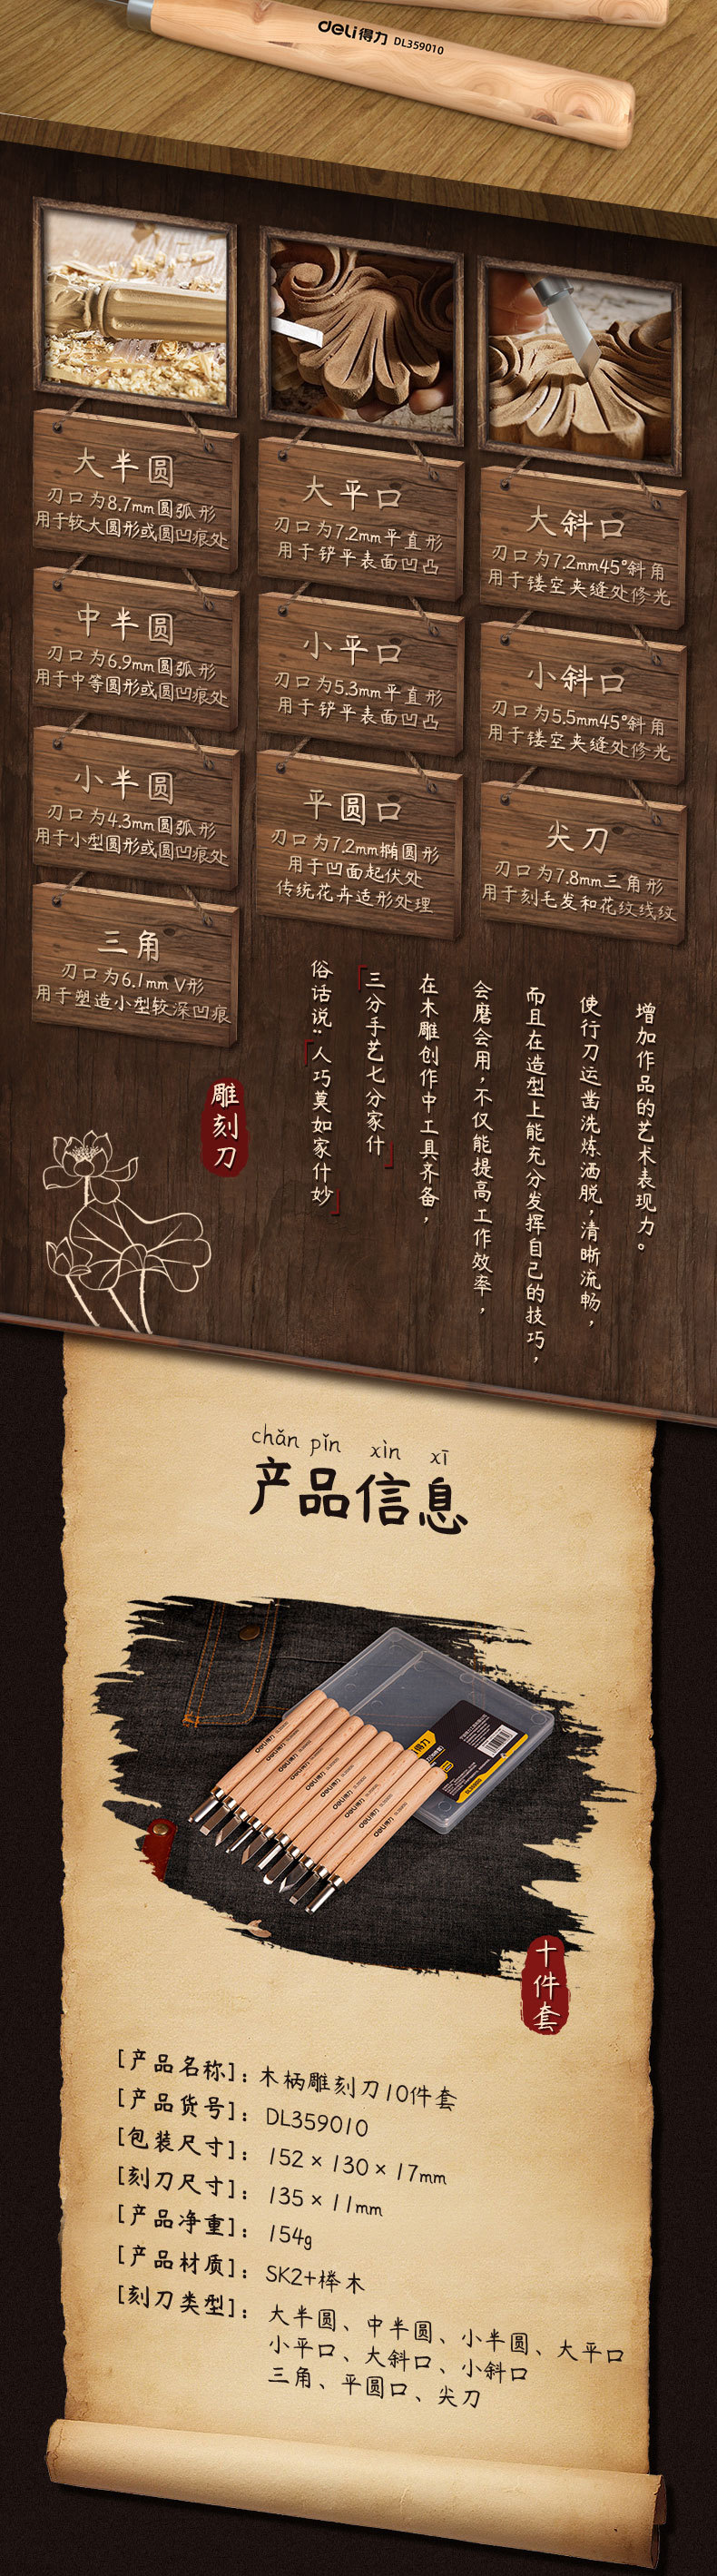 deli得力 DL359010
大半圆
刃口为8.7mm圆弧形
用于较大圆形或圆凹痕处
中半圆
刃口为6.9mm圆弧形
用于中等圆形或圆凹痕处
小半圆
刃口为4.3mm圆弧形
用于小型圆形或圆凹痕处
三角
刃口为6.1mm V形
用于塑造小型较深凹痕
大平口
刃口为7.2mm平直形
用于铲平表面凹凸
小平口
刃口为5.3mm平直形
用于铲平表面凹凸
平圆口
刃口为7.2mm椭圆形
用于凹面起伏处
传统花卉造形处理
大斜口
刃口为7.2mm45°斜角
用于镂空夹缝处修光
小斜口
刃口为5.5mm45°斜角
用于镂空夹缝处修光
尖刀
刃口为7.8mm三角形
用于刻毛发和花纹线纹
雕刻刀
俗话说:「人巧莫如家什妙」
「三分手艺七分家什」
在木雕创作中工具齐备,
会磨会用,不仅能提高工作效率,
而且在造型上能充分发挥自己的技巧,
使行刀运凿洗炼洒脱,清晰流畅,
增加作品的艺术表现力。
chǎn pǐn xìn xī
产品信息
十件套
[产品名称]: 木柄雕刻刀10件套
[产品货号]: DL359010
[包装尺寸]: 152×130×17mm
[刻刀尺寸]: 135×11mm
[产品净重]: 154g
[产品材质]: SK2+榉木
[刻刀类型]: 大半圆、中半圆、小半圆、大平口
小平口、大斜口、小斜口
三角、平圆口、尖刀